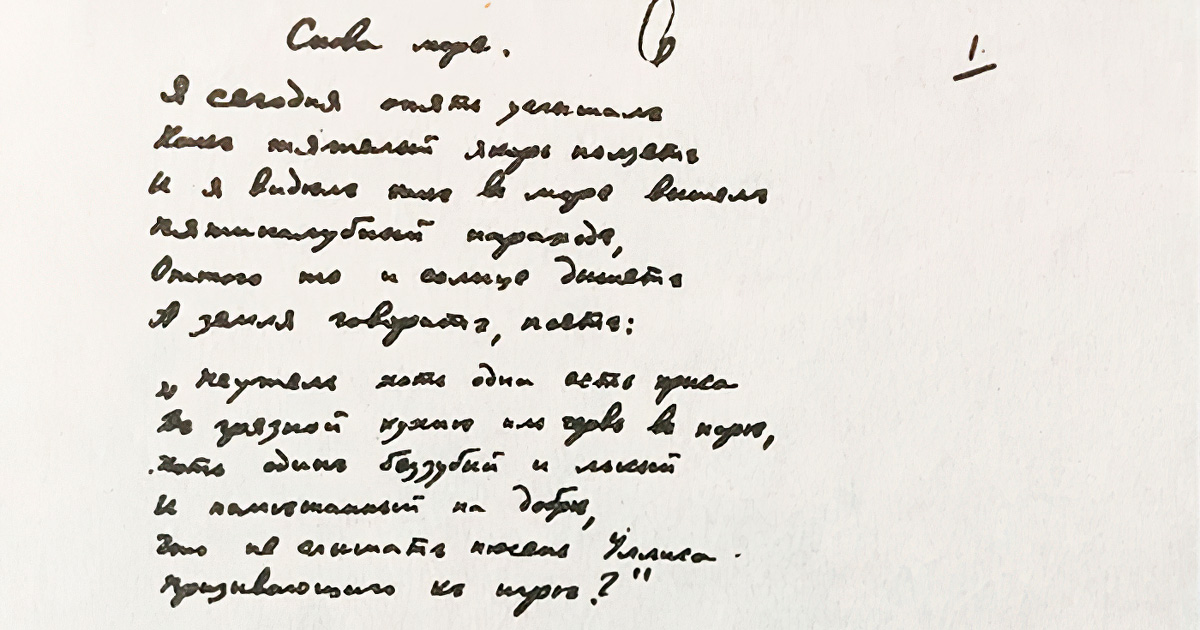 Снова море.
1.
Я сегодня опять услышалъ
Какъ тяжелый якорь ползетъ
И я видѣлъ какъ въ море вышелъ
Пятипалубный пароходъ,
Оттого то и солнце дышетъ
А земля говоритъ, поетъ:
„Неужель хоть одна есть крыса
Въ грязной кухнѣ иль червь въ норѣ,
Хоть одинъ беззубый и лысый
И помѣшанный на добрѣ,
Что не слышатъ пѣсенъ Уллиса
Призывающаго къ игрѣ?"